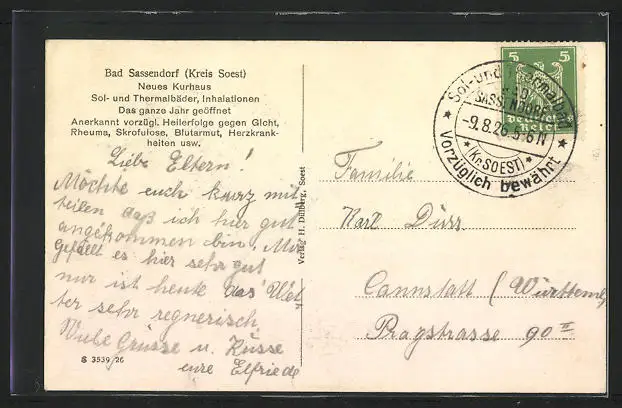 Bad Sassendorf (Kreis Soest)
Neues Kurhaus
Sol- und Thermalbäder, Inhalationen
Das ganze Jahr geöffnet
Anerkannt vorzügl. Heilerfolge gegen Gicht,
Rheuma, Skrofulose, Blutarmut, Herzkrank-
heiten usw.
Liebe Eltern!
Möchte euch kurz mit-
teilen daß ich hier gut
angekommen bin. Mir
Gefällt es hier sehr gut
nur ist heute das Wet-
ter sehr regnerisch.
Viele Grüsse u. Küsse
eure Elfriede
S 3539/26
Verlag H. Dülberg, Soest
5 5
Deutsches
Reich
Sol- und Thermalbad
SASSENDORF
-9.8.26.5-6N
(Kr. SOEST)
Vorzüglich bewährt
Familie
Karl Dürr
Cannstatt (Württembg
Pragstrasse 90 III